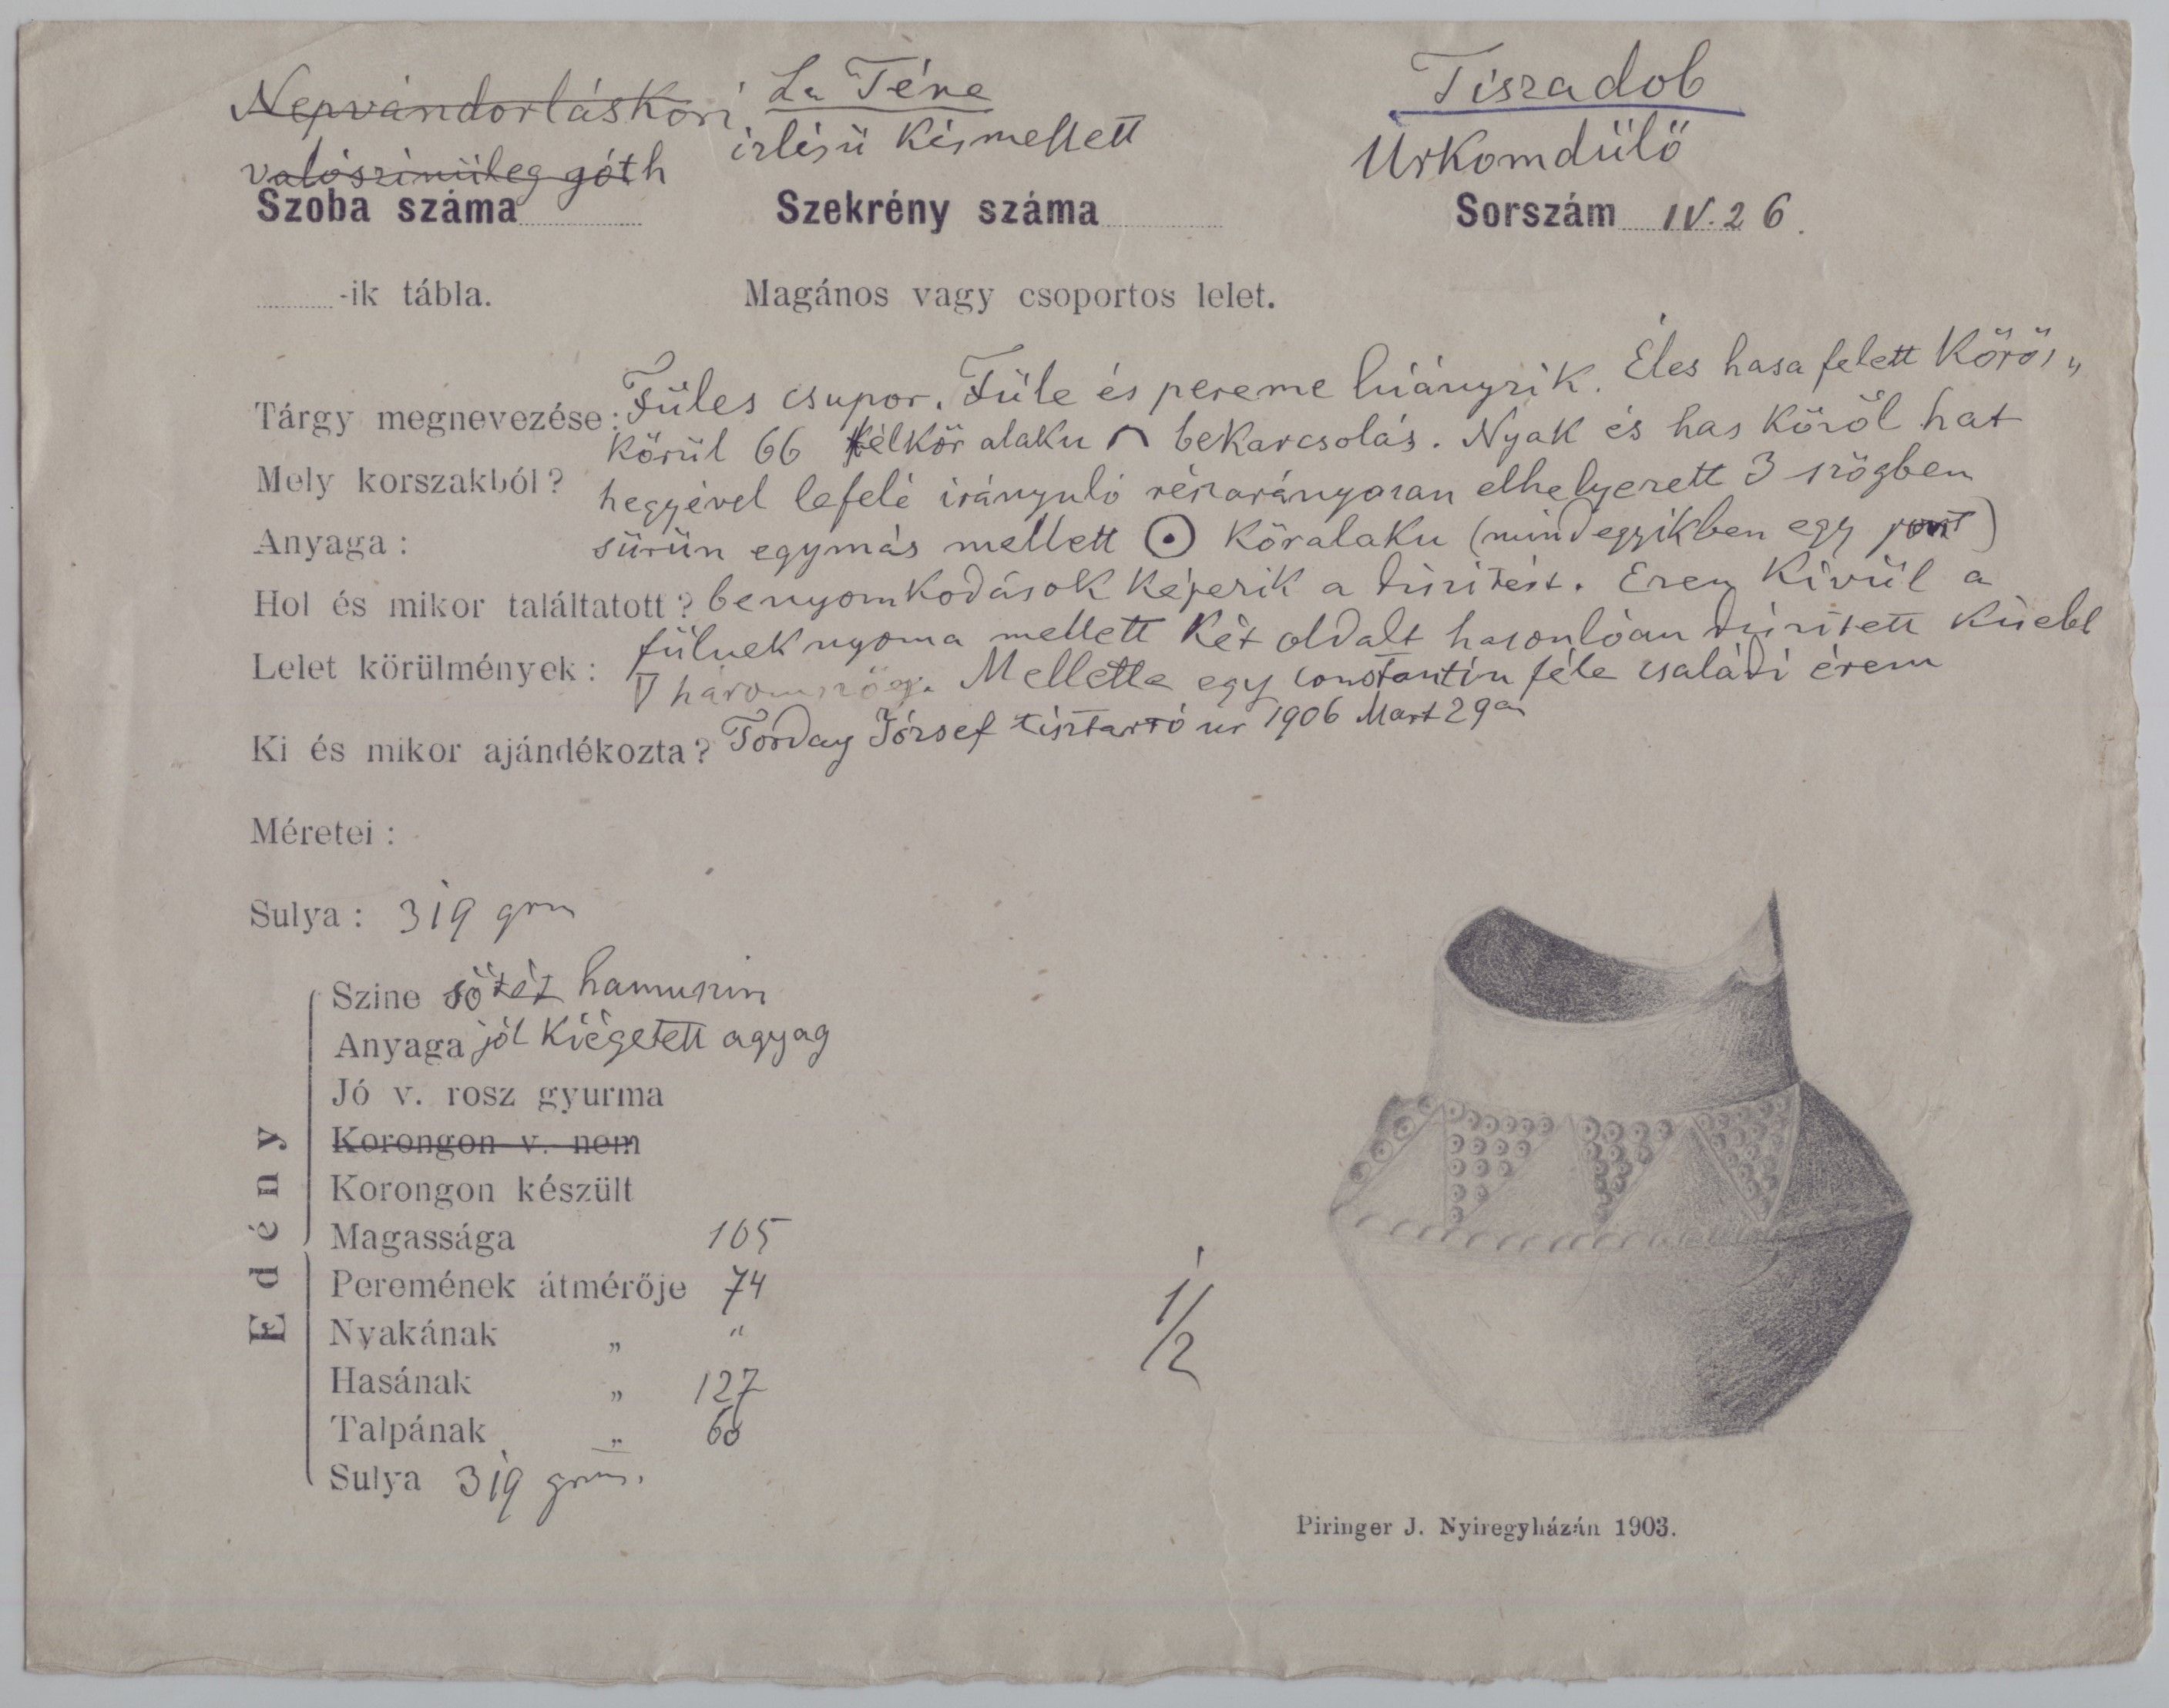 Népvándorláskori La Téne Tiszadob
valószinüleg góth izlésü Késmellett Urkomdülö
Szoba száma Szekrény száma Sorszám IV. 26.
-ik tábla. Magános vagy csoportos lelet.
Tárgy megnevezése: Füles csupor. Füle és pereme hiányzik. Éles hasa felett Körös„
körül 66 félkör alaku ∩ bekarcsolás. Nyak és has között hat
Mely korszakból?
hegyével lefelé irányuló részarányosan elhelyezett 3 szögben
Anyaga: sürün egymás mellett ⊙ Köralaku (mindegyikben egy pont)
Hol és mikor találtatott? benyomkodások képezik a diszitést. Ezen Kivül a
fülnek nyoma mellett Két oldalt hasonlóan diszitett kisebb
Lelet körülmények:
▽ háromszög. Mellette egy constantin féle családi érem
Ki és mikor ajándékozta? Torday József tisztartó ur 1906 Mart 29én
Méretei:
Sulya: 319 grm
Edény
Szine sötét hamuszin
Anyaga jól Kiégetett agyag
Jó v. rosz gyurma
Korongon v. nem
Korongon készült
Magassága 105
Peremének átmérője 74
Nyakának „ „
1/2
Hasának „ 127
Talpának „ 60
Sulya 319 grm.
Piringer J. Nyiregyházán 1903.